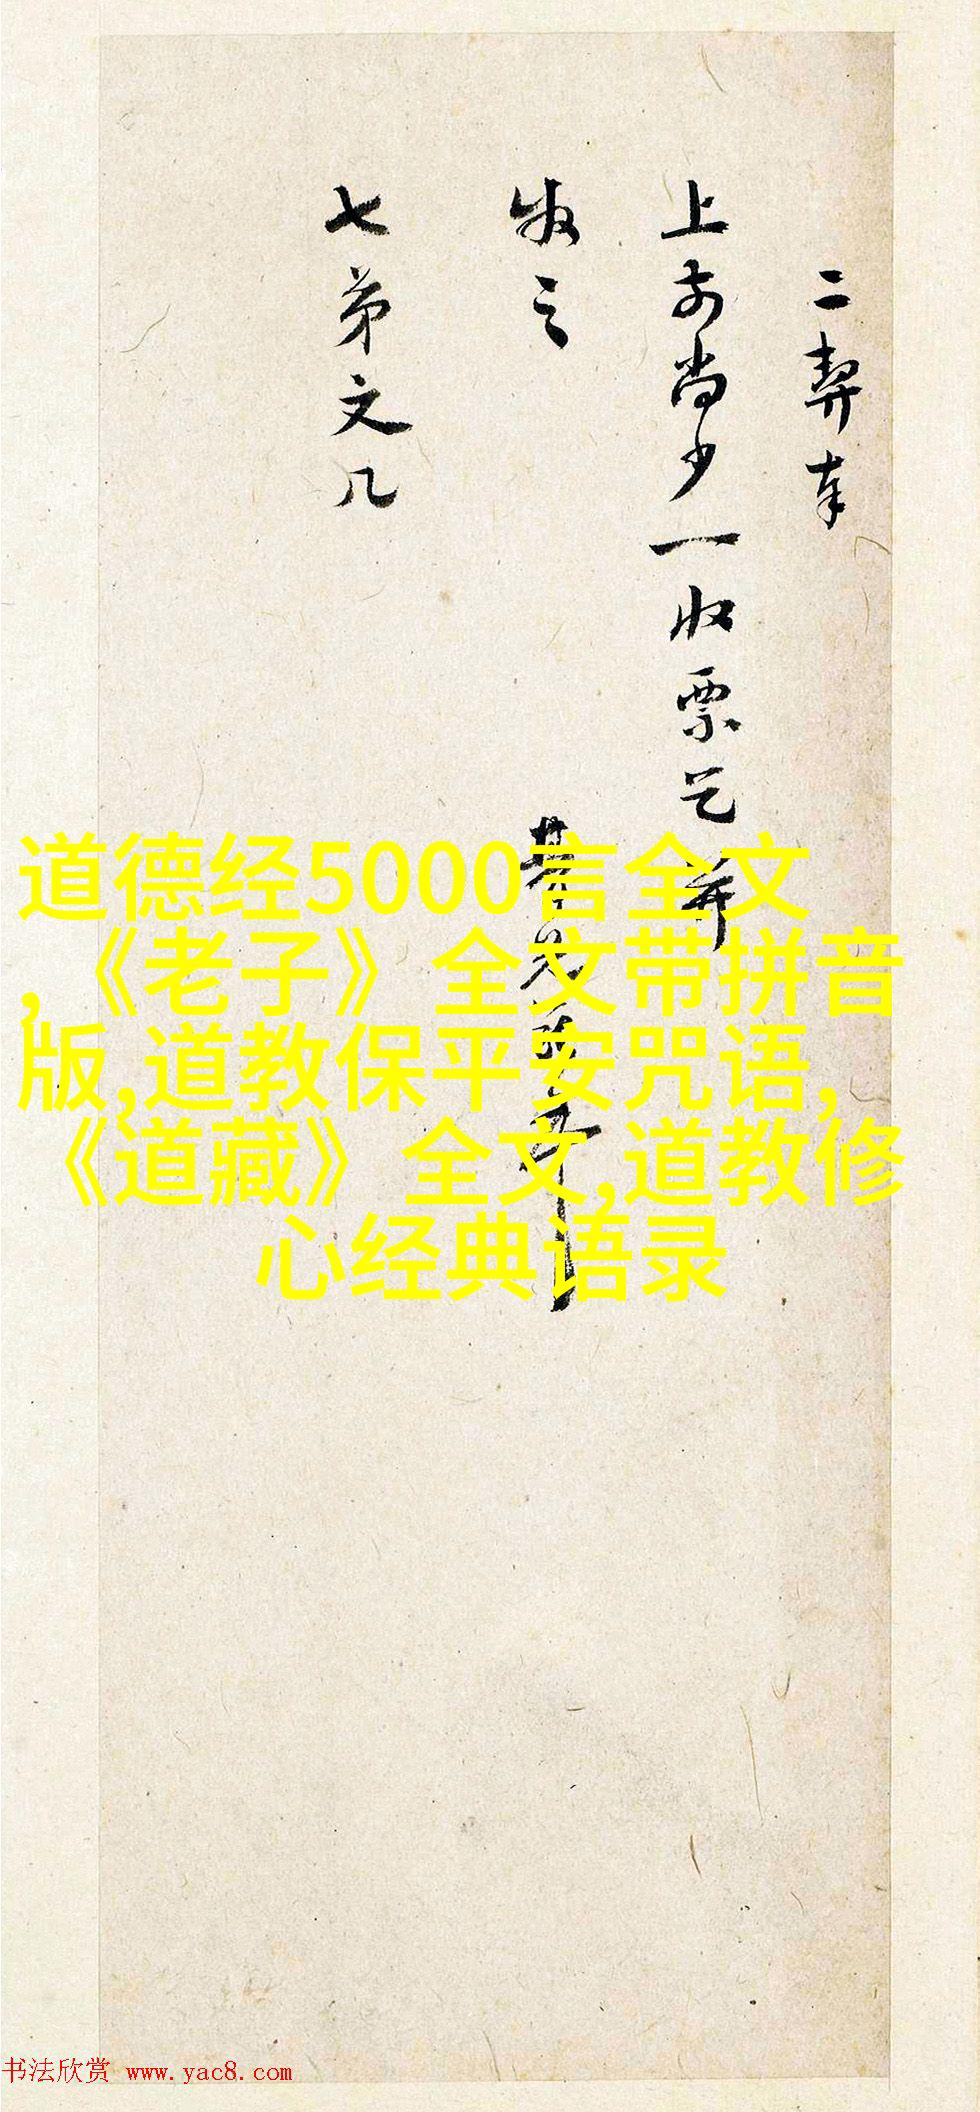 二契奉
上前尚少一收票乞并
收之
七弟文几
道德经5000言全文
,《老子》全文带拼音
版,道教保平安咒语,
《道藏》全文,道教修
心经典语录
书法欣赏 www.yac8.com